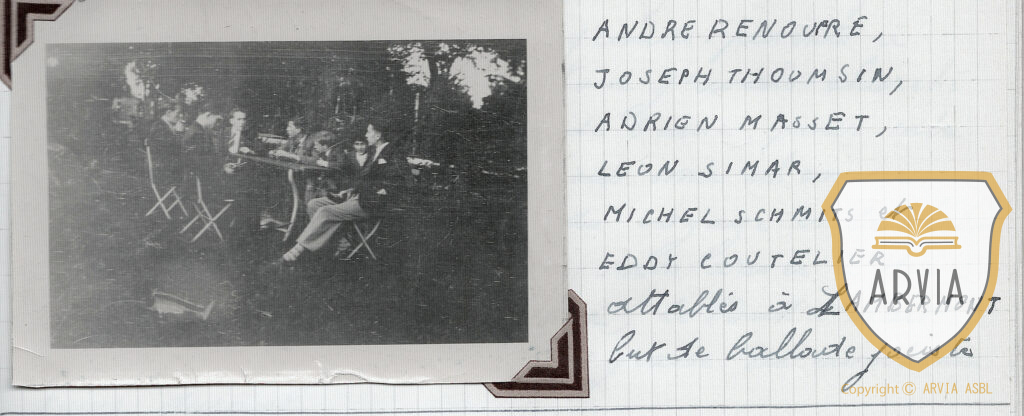 ANDRE RENOUPRE,
JOSEPH THOUMSIN,
ADRIEN MASSET,
LEON SIMAR,
MICHEL SCHMITS et
EDDY COUTELIER
attablés à LAMBERMONT
but de ballade
ARVIA
Copyright © ARVIA ASBL